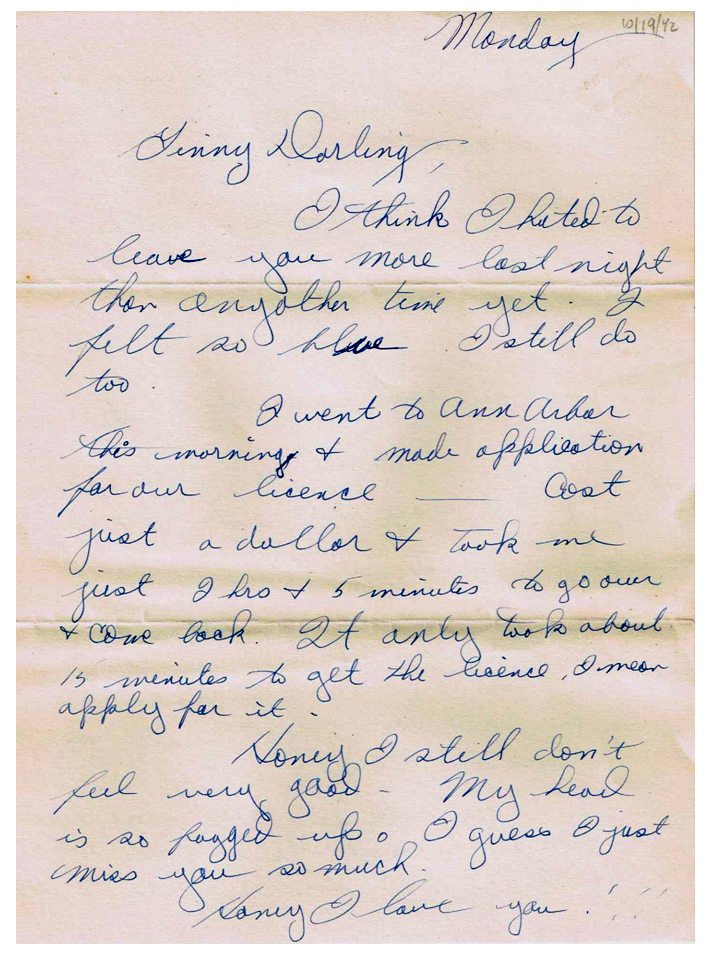 Monday 10/19/42
Ginny Darling,
I think I hated to
leave you more last night
than anyother time yet. I
felt so blue I still do
too.
I went to Ann Arbor
this morning & made application
for our licence — Cost
just a dollar & took me
just 2 hrs & 5 minutes to go over
& come back. It only took about
15 minutes to get the licence, I mean
apply for it.
Honey I still don't
feel very good - My head
is so fogged up. I guess I just
miss you so much.
Honey I love you.!!!